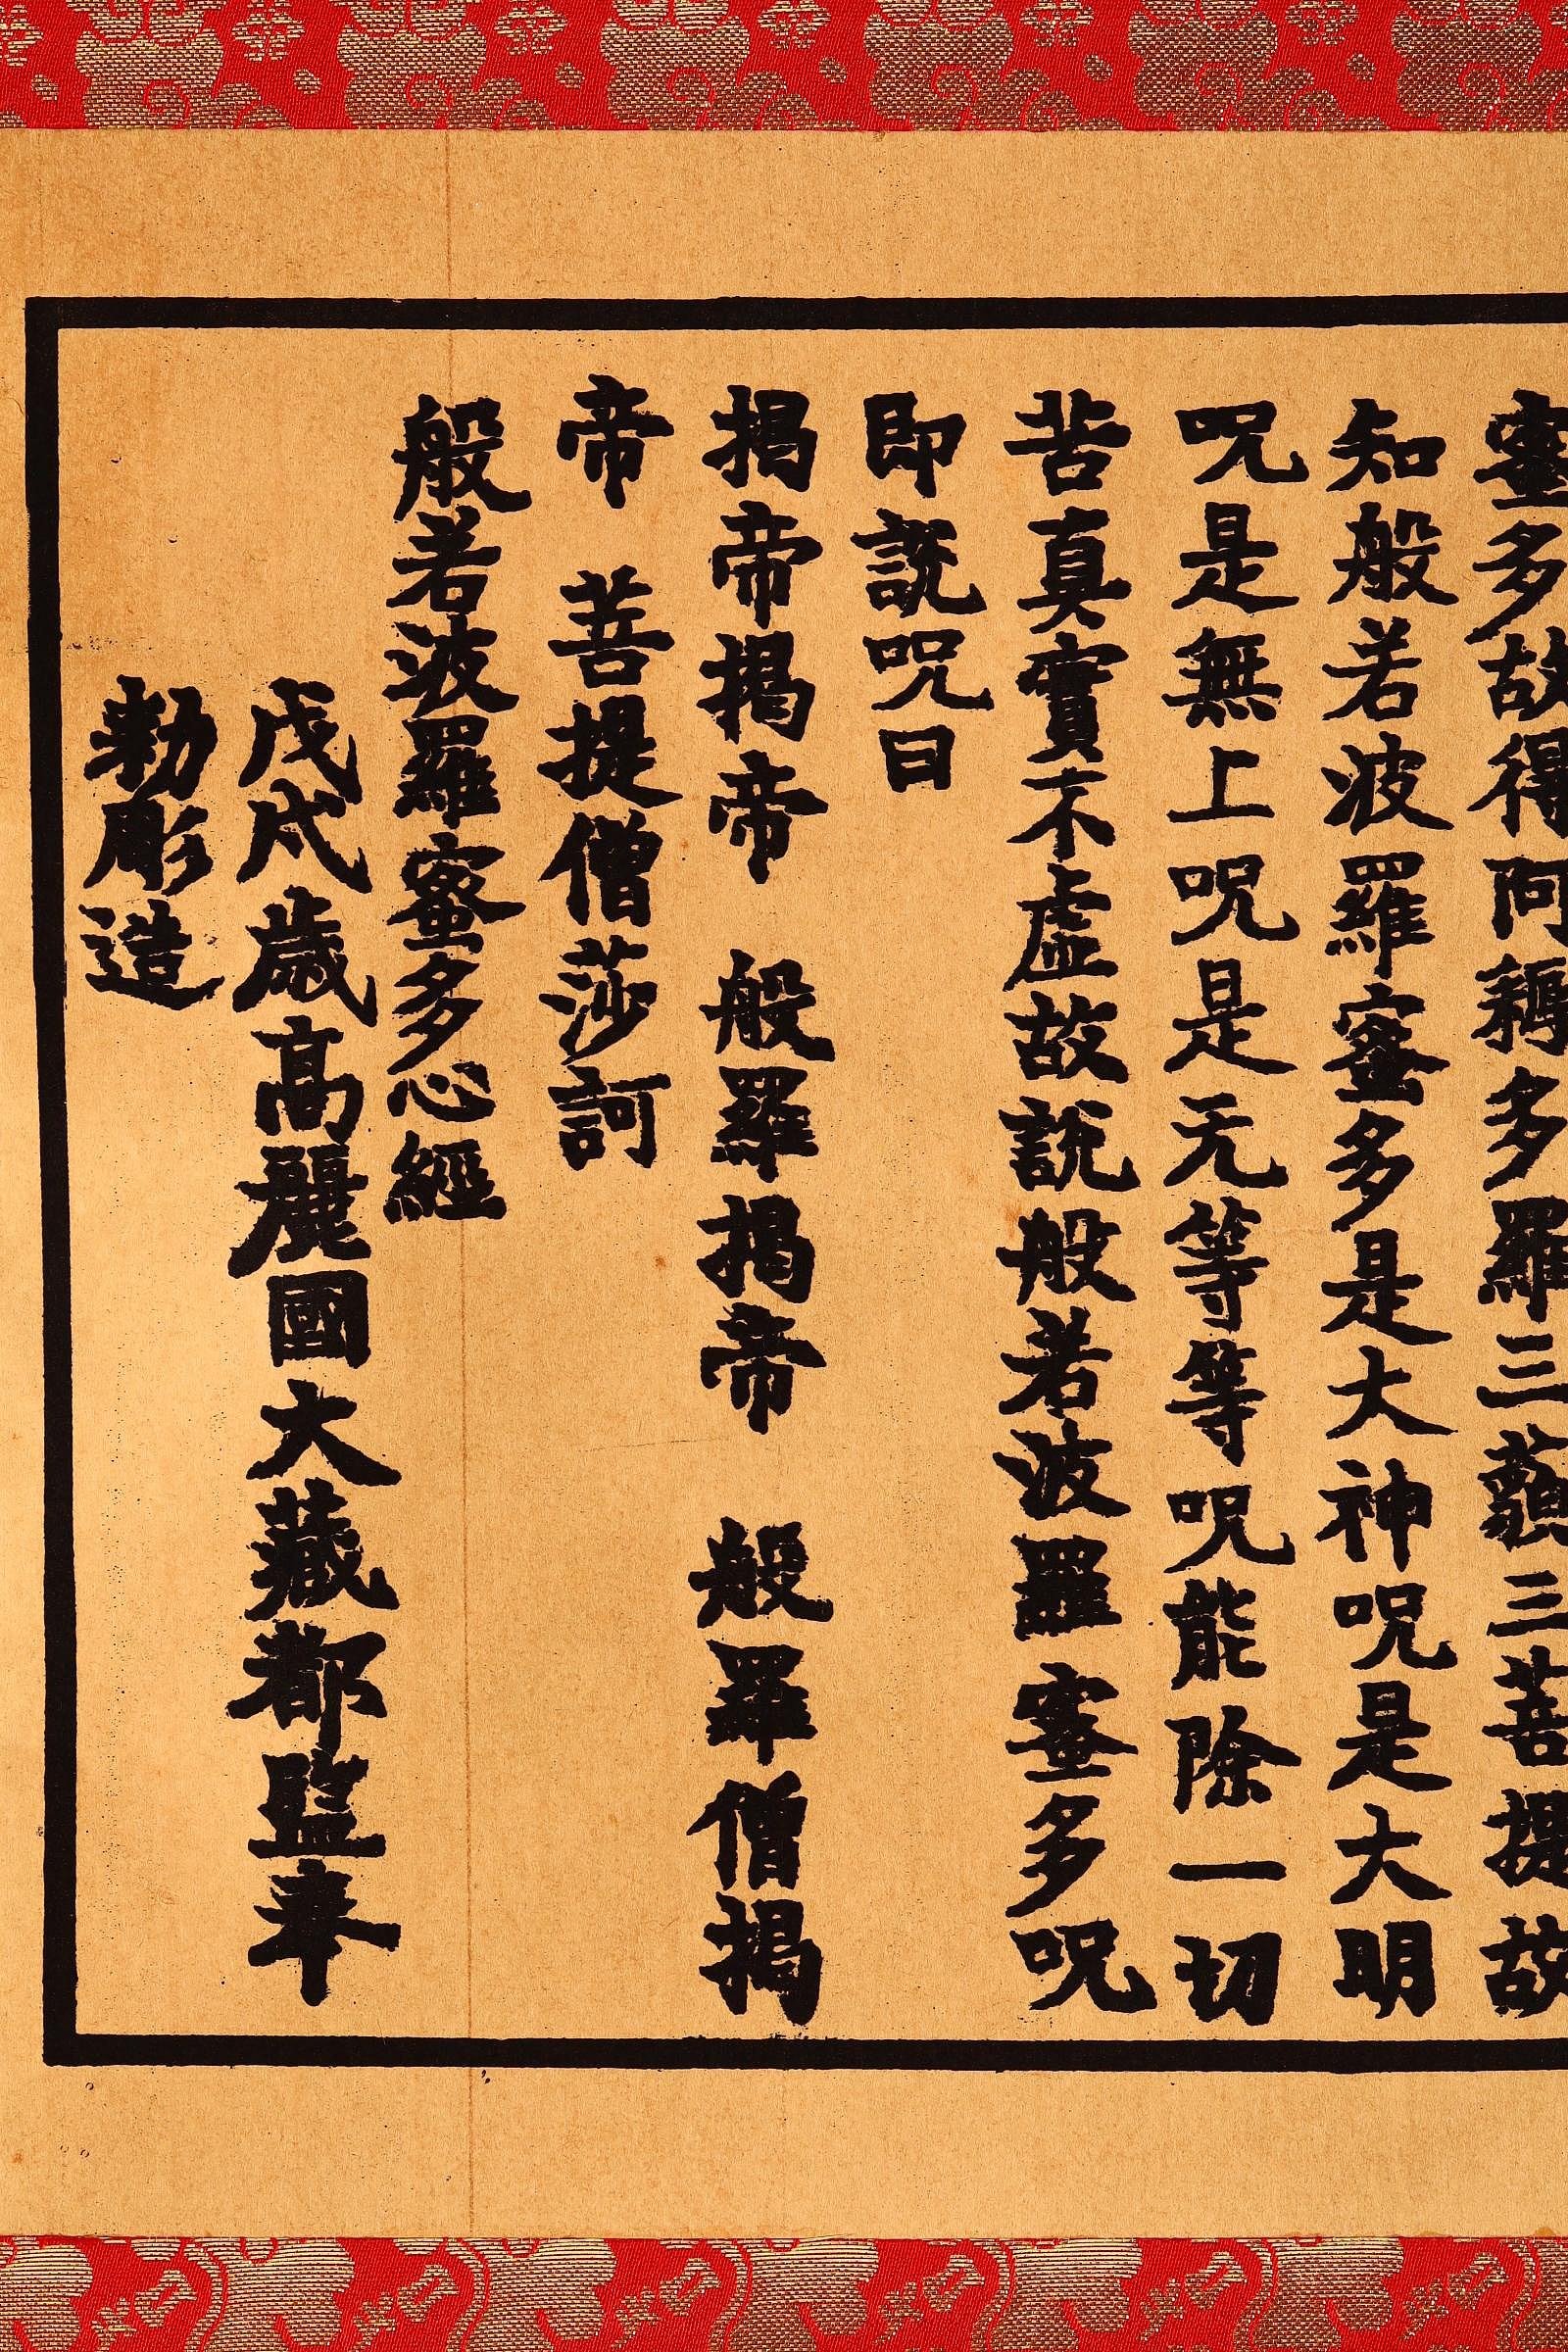 蜜多故得阿耨多羅三藐三菩提故
知般若波羅蜜多是大神呪是大明
呪是無上呪是无等等呪能除一切
苦真實不虛故說般若波羅蜜多呪
即說呪曰
揭帝揭帝　般羅揭帝　般羅僧揭
帝　菩提僧莎訶
般若波羅蜜多心經
戊戌歲高麗國大藏都監奉
勅彫造